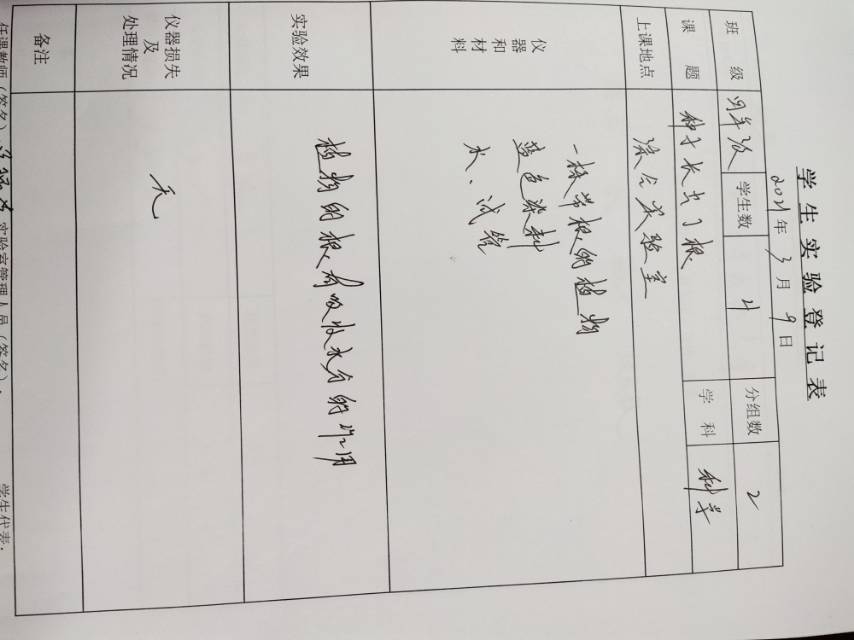 学生实验登记表
2021年3月9日
班级 四年级 学生数 4 分组数 2
课题 种子长出了根 学科 科学
上课地点 综合实验室
仪器和材料
一株带根的植物
蓝色染料
水、试管
实验效果 植物的根有吸收水分的作用
仪器损失及处理情况 无
备注
任课教师(签名) 实验室管理人员(签名): 学生代表: